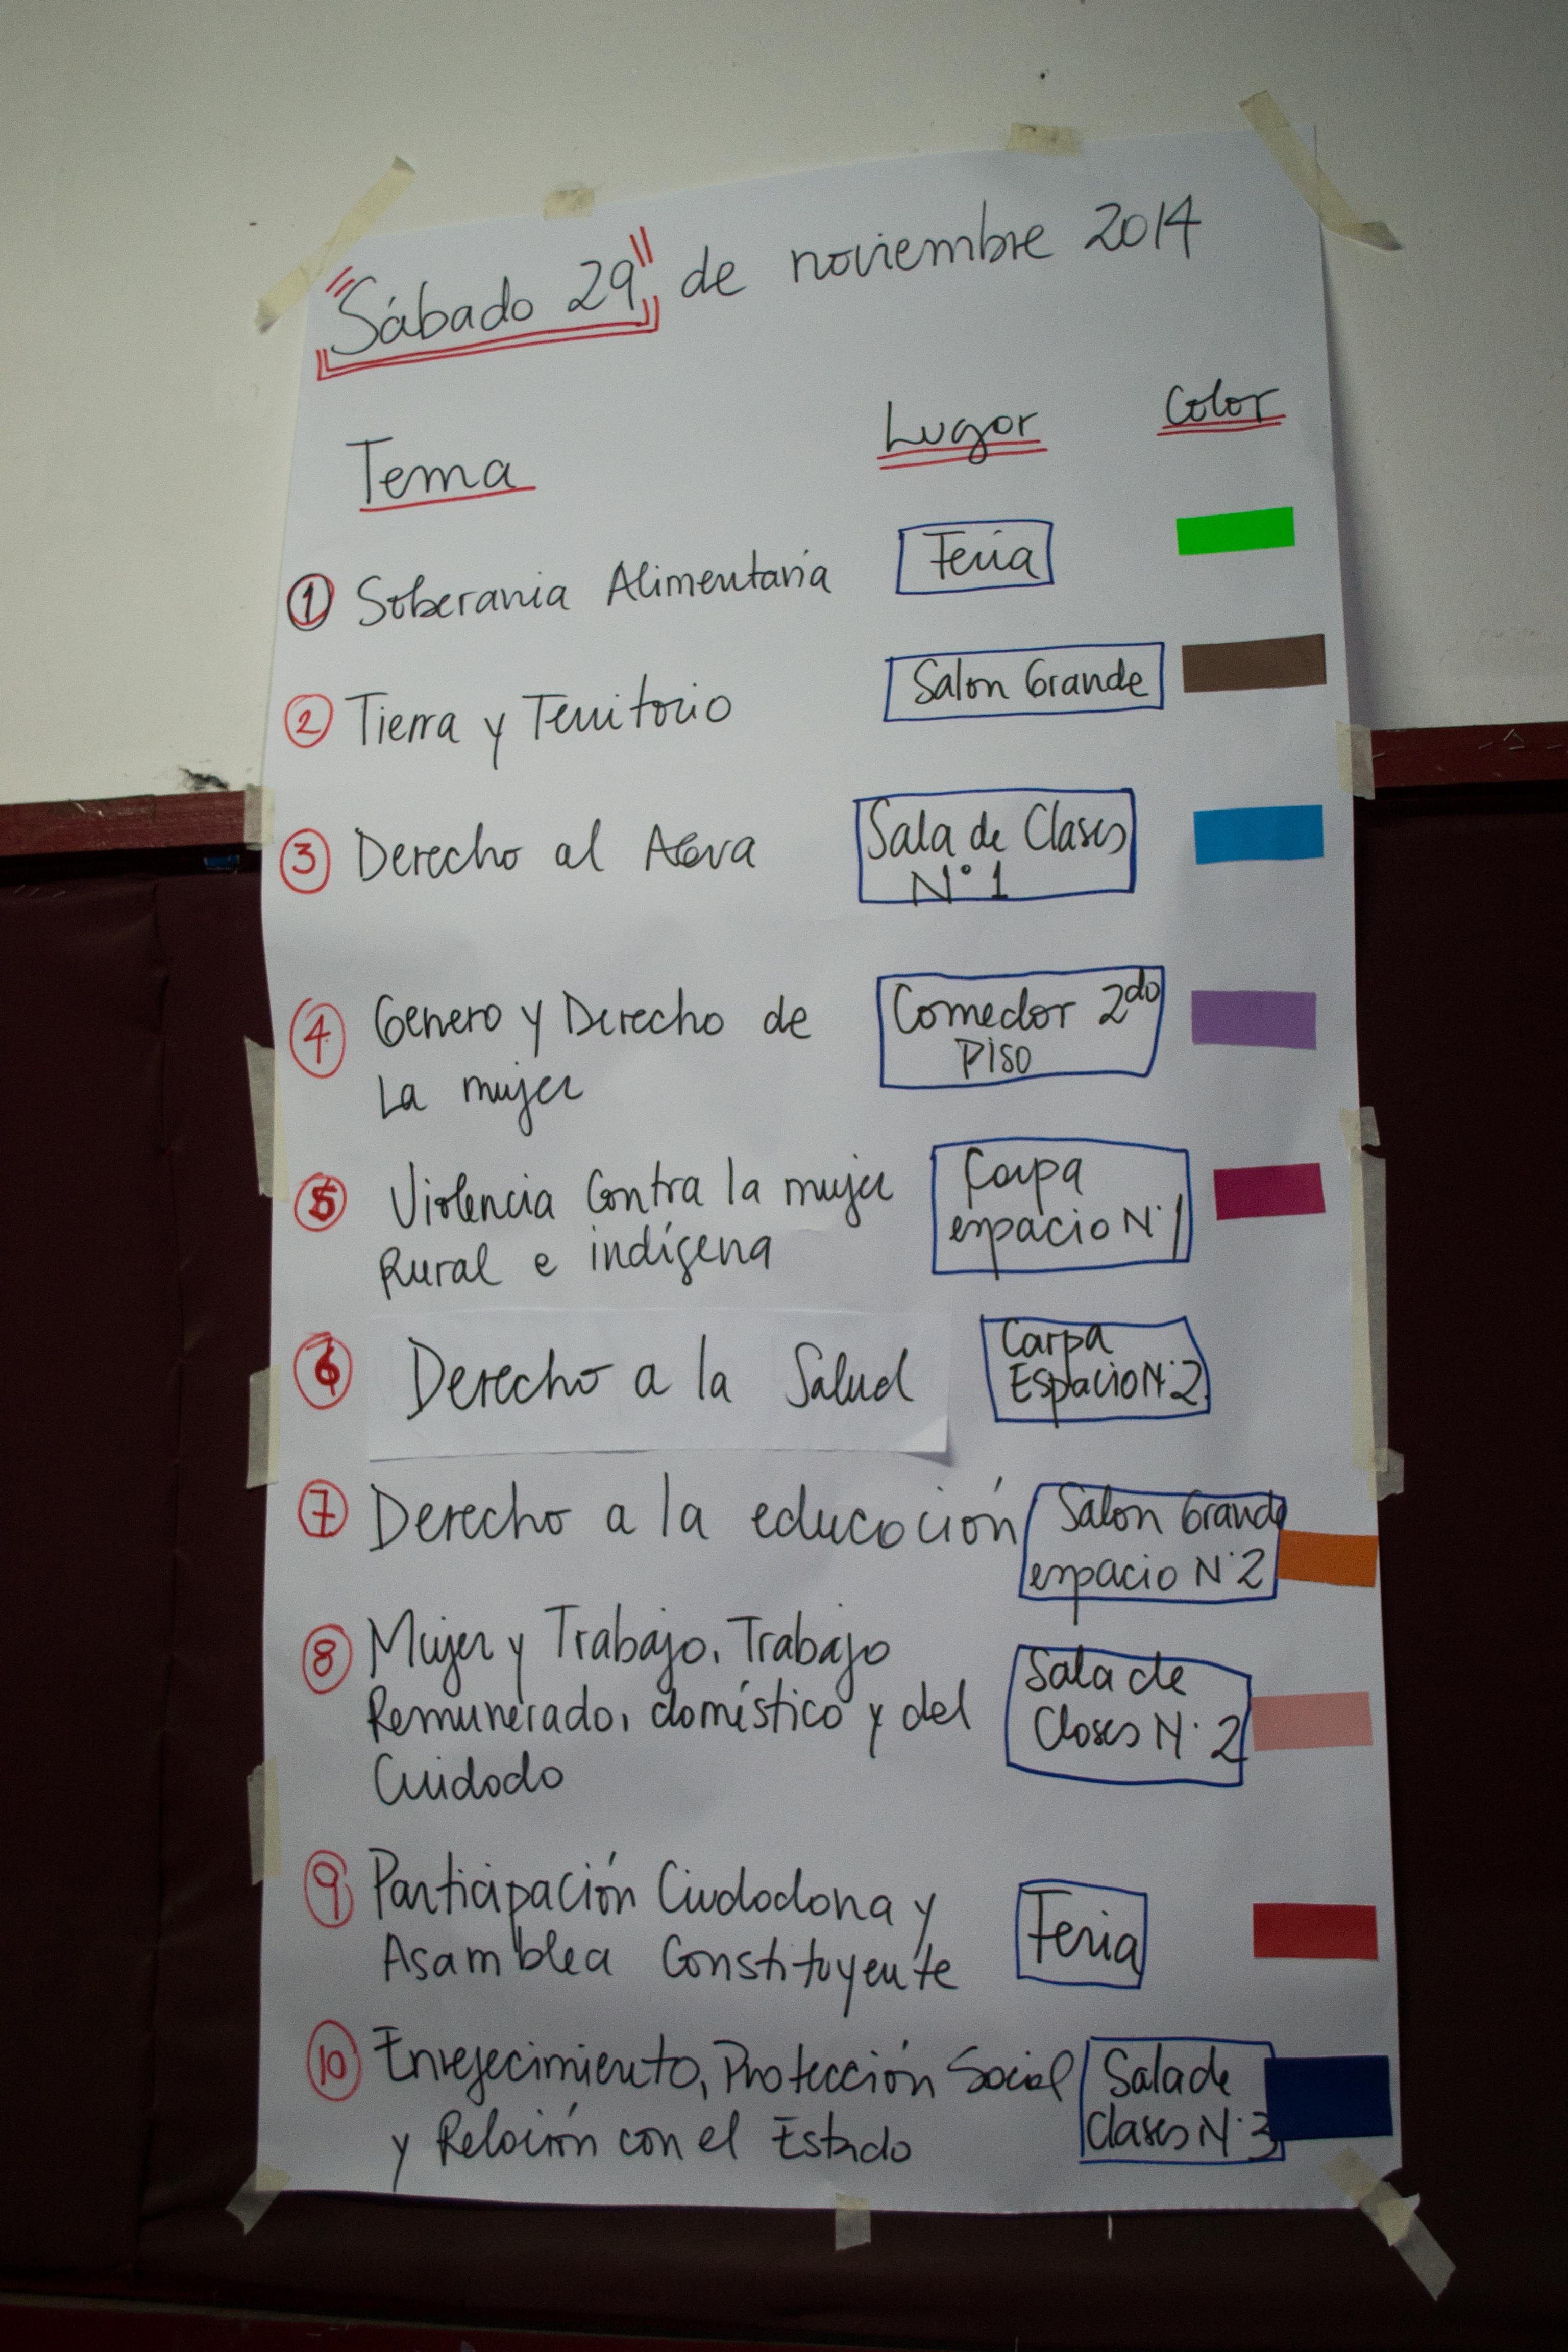 "Sábado 29" de noviembre 2014
Tema Lugar Color
1 Soberania Alimentaria Feria
2 Tierra y Territorio Salon Grande
3 Derecho al Agua Sala de Clases
N° 1
4 Genero y Derecho de Comedor 2do
La mujer Piso
5 Violencia Contra la mujer Carpa
Rural e indígena espacio N°1
6 Derecho a la Salud Carpa
Espacio N°2
7 Derecho a la educación Salon Grande
espacio N°2
8 Mujer y Trabajo, Trabajo Sala de
Remunerado, doméstico y del Clases N° 2
Cuidado
9 Participación Ciudadana y Feria
Asamblea Constituyente
10 Envejecimiento, Protección Social Sala de
y Relación con el Estado Clases N°3